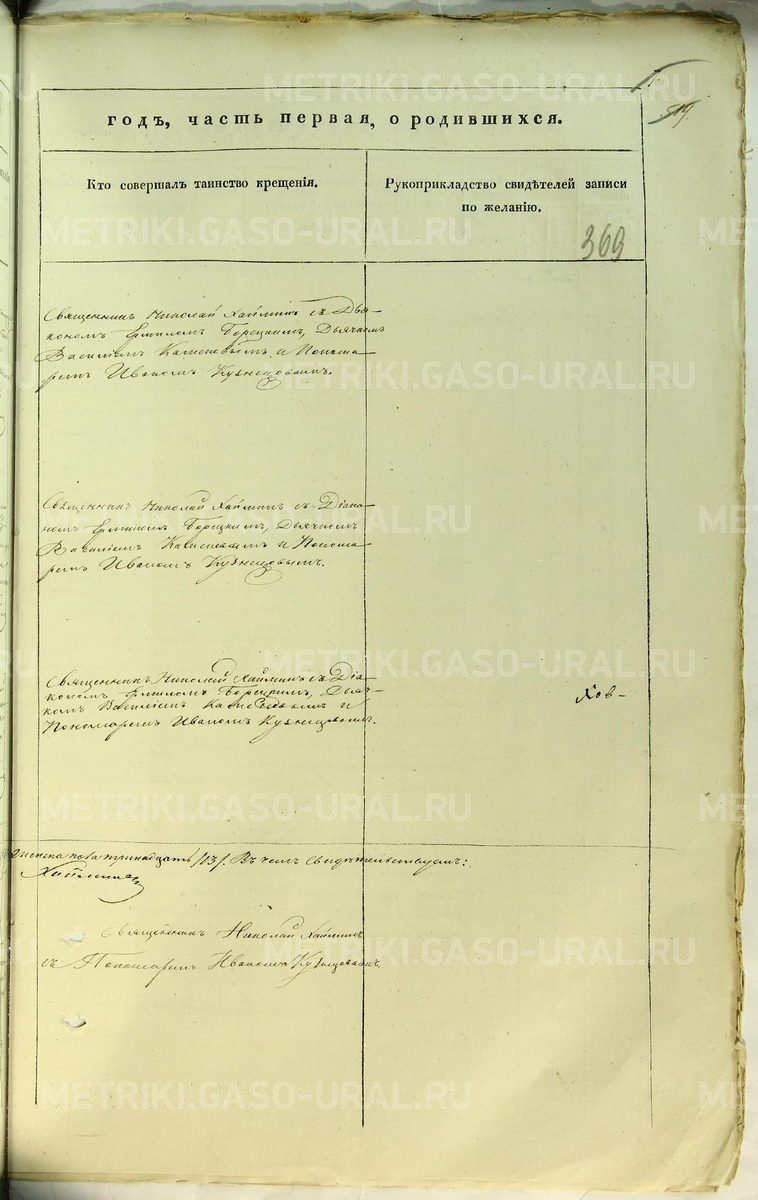 годъ, часть первая, о родившихся.
19.
Кто совершалъ таинство крещенія.
Рукоприкладство свидѣтелей записи
по желанію.
369
Священникъ Николай Хаминъ съ Дья-
кономъ Ермиломъ Борецкимъ, Дьячкомъ
Василіемъ и Понома-
ремъ Иваномъ Кузнецовымъ.
Священникъ Николай Хаминъ съ Діако-
номъ Ермиломъ Борецкимъ, Дьячкомъ
Василіемъ и Понома-
ремъ Иваномъ Кузнецовымъ.
Священникъ Николай Хаминъ съ Діа-
кономъ Ермиломъ Борецкимъ, Дьяч-
комъ Василіемъ и
Пономаремъ Иваномъ Кузнецовымъ.
Хов-
пола тринадцать /13/. Въ чемъ свидѣтельствуемъ:
Священникъ Николай Хаминъ
съ Пономаремъ Иваномъ Кузнецовымъ
METRIKI.GASO-URAL.RU